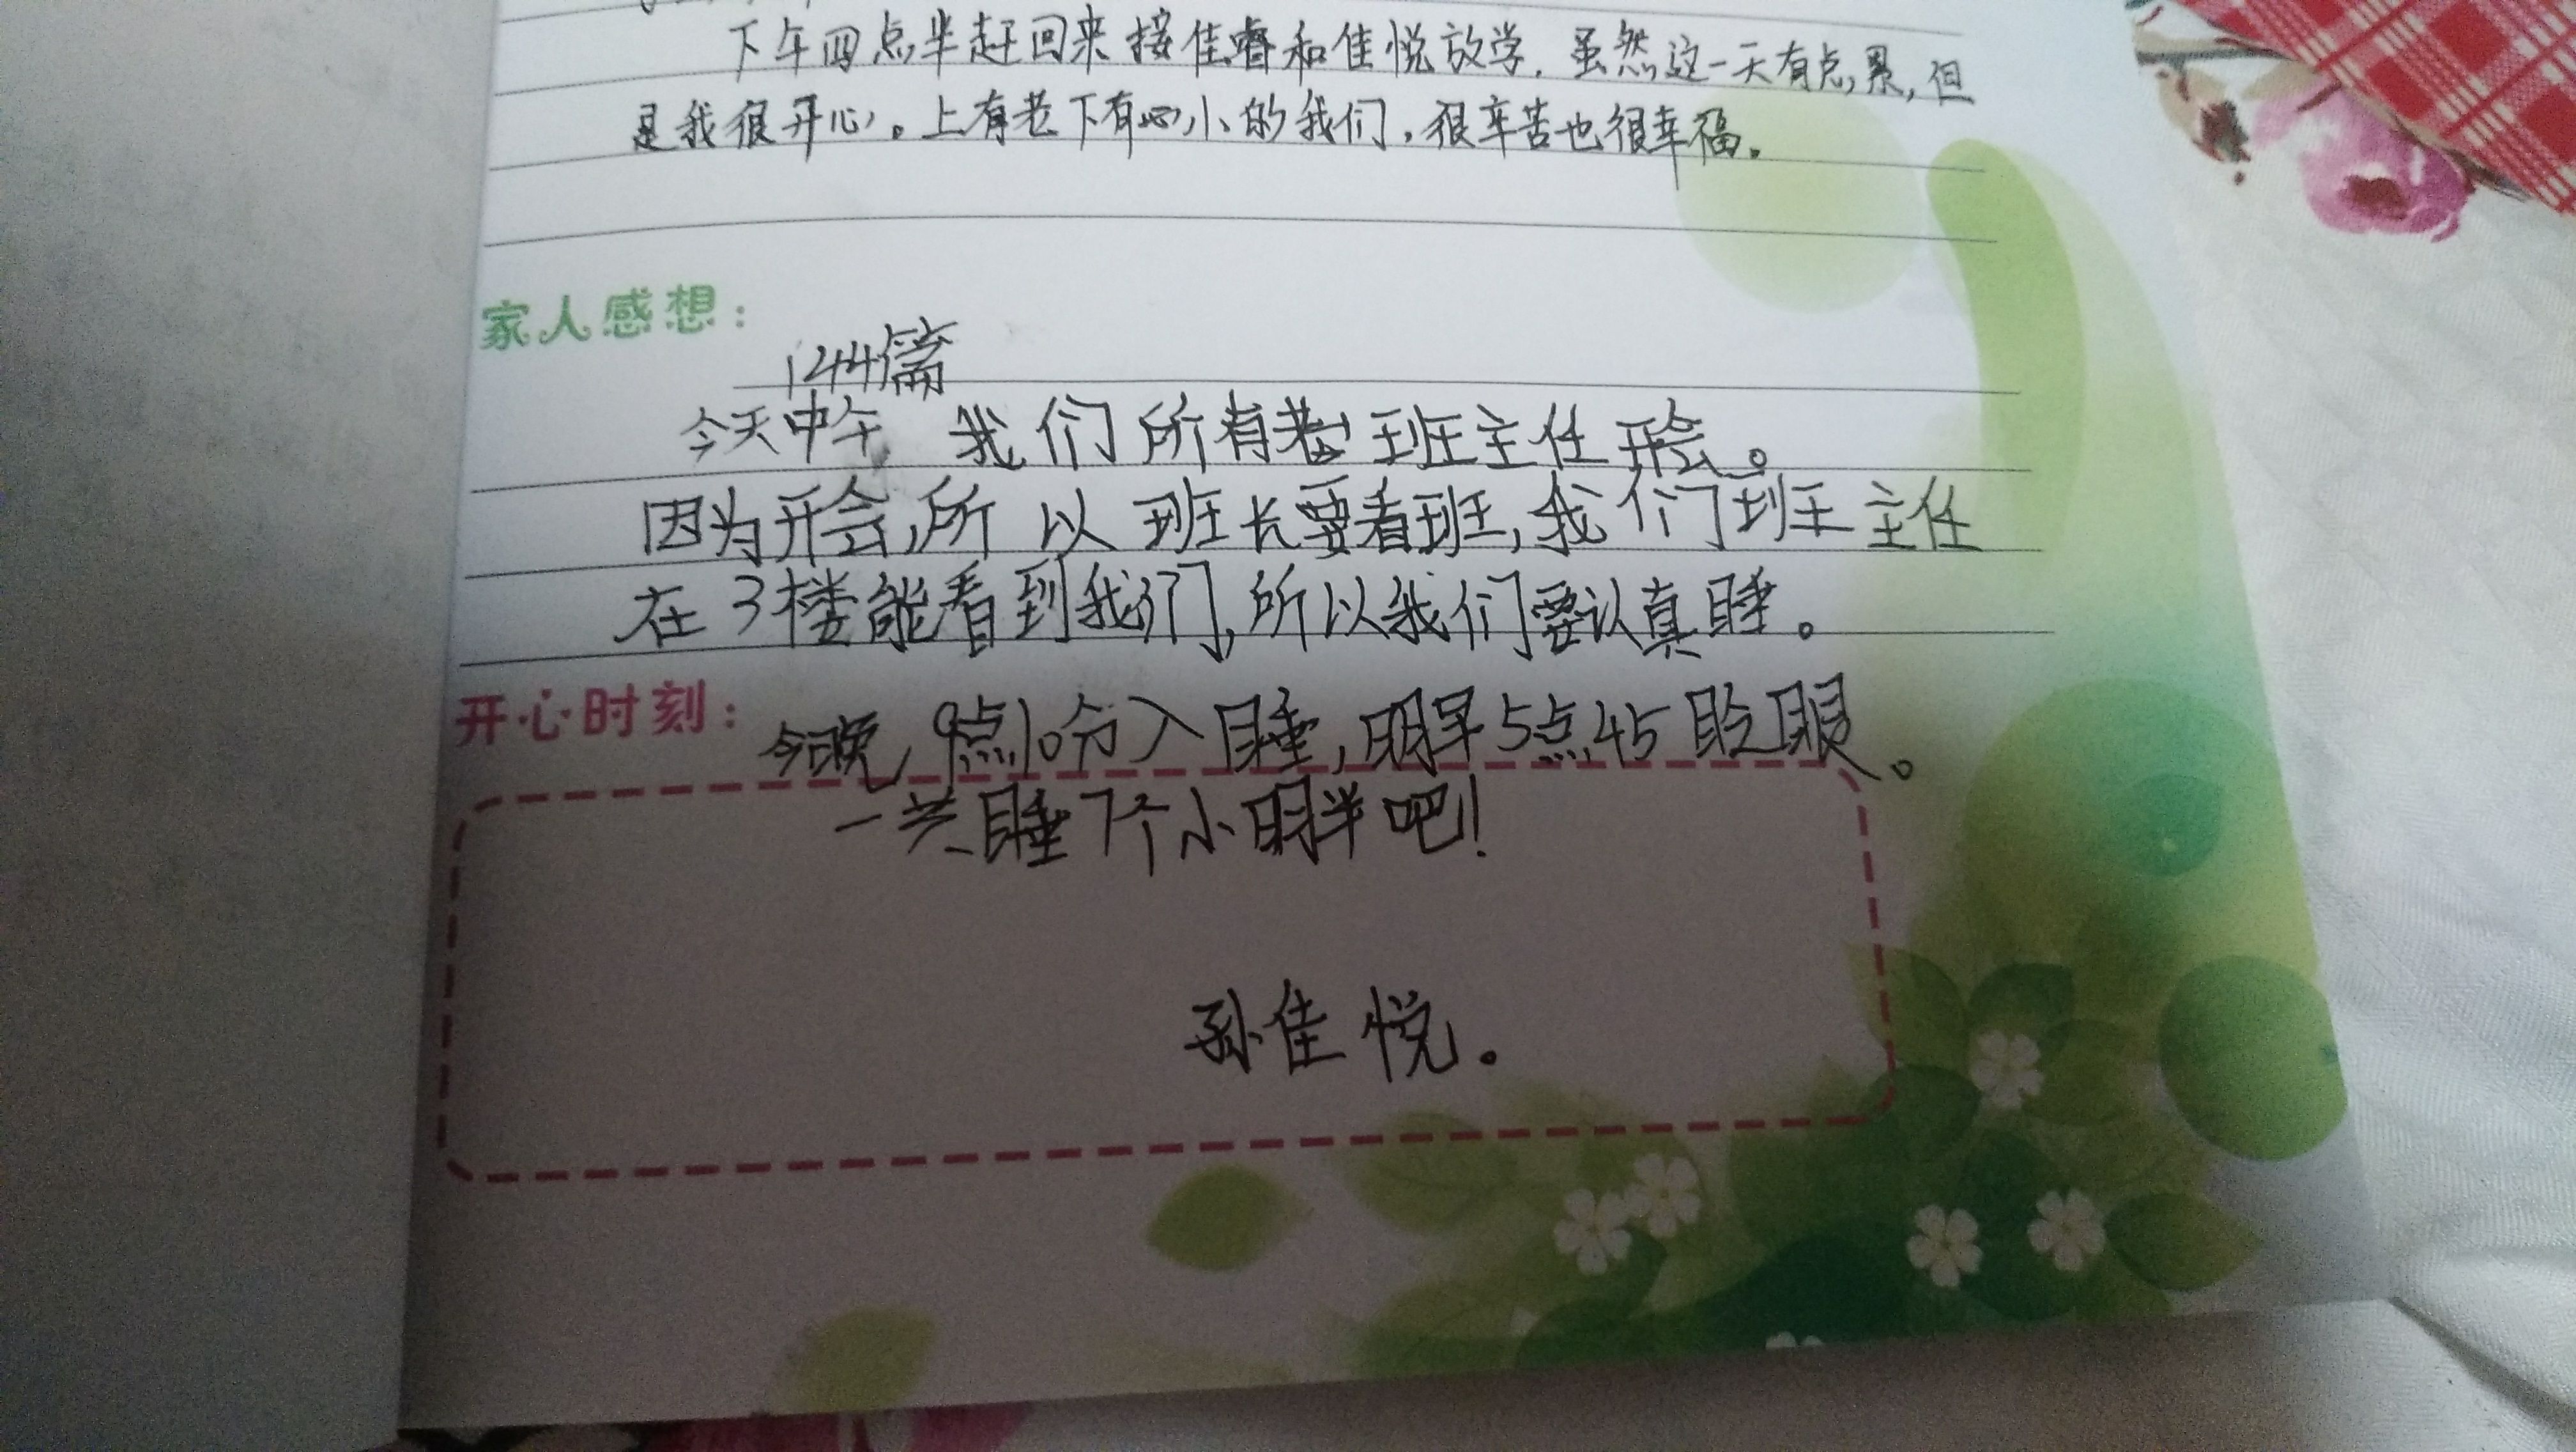 下午四点半赶回来接佳睿和佳悦放学。虽然这一天有点累,但
是我很开心。上有老下有小的我们,很辛苦也很幸福。
家人感想:
144篇
今天中午,我们所有班主任开会。
因为开会,所以班长要看班,我们班主任
在3楼能看到我们,所以我们要认真睡。
开心时刻:
今晚,9点10分入睡,明早5点45眨眼。
一共睡7个小时半吧!
孙佳悦。